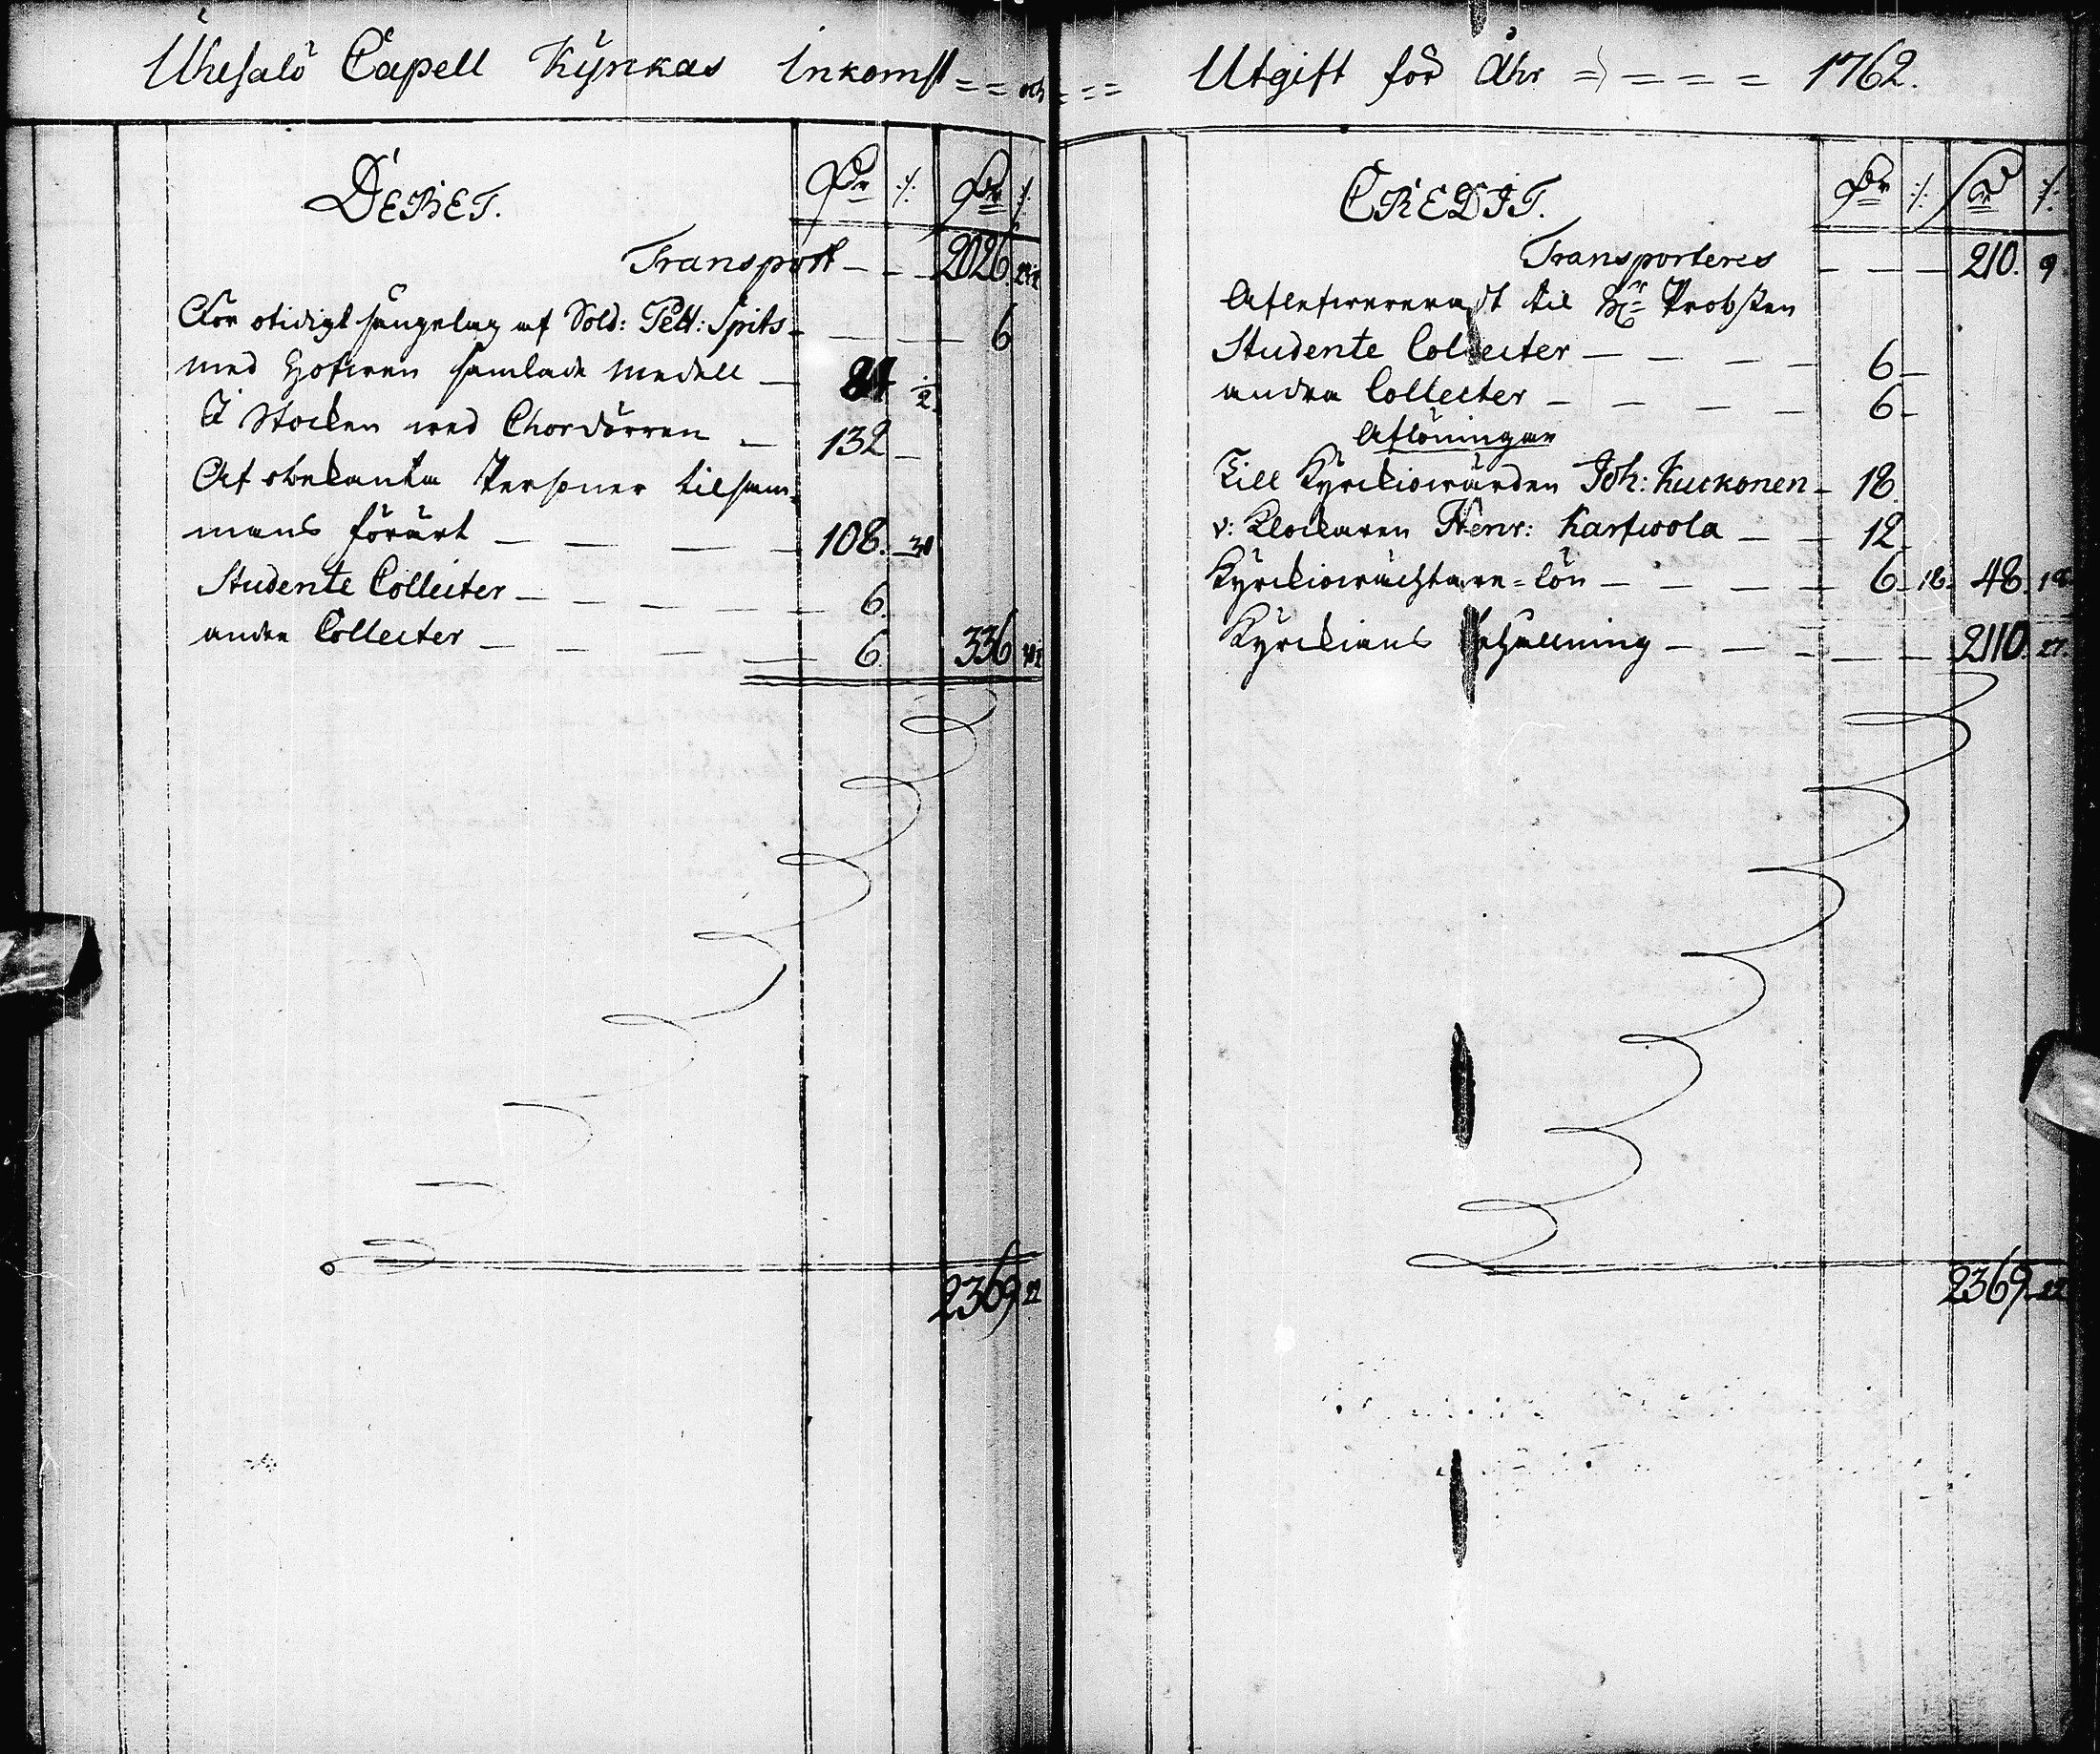 Uhesalô Capell Kÿrkas Inkomst = = och = = = Utgift för Åhr = = = = 1762.
DEBET.
Transport — — 2026.
För otidigt sängelag af Sold: Pett: Spits — — — 6
med Hofwen samlade medell — 84
I Stocken wed Chordörren — 132 —
Af obekanta Personer tilsam=
mans förärt — — — — 108. 30
Studente Collecter — — — — 6.
andra Collecter — — — — 6. 336
2369 22
CREDIT.
Transporteres — — — 210. 9
Aflefwererat til Hr Probsten
Studente Collecter — — — — 6 —
andra Collecter — — — — 6 —
Aflöningar
Till Kÿrckiowärden Joh: Kuckonen — 18.
v: Klockaren Henr: Karfwola — — 12
Kÿrckiowächtare=lön — — — — 6. 18. 48. 18
Kÿrckians behållning — — — — — 2110. 27.
2369. 22